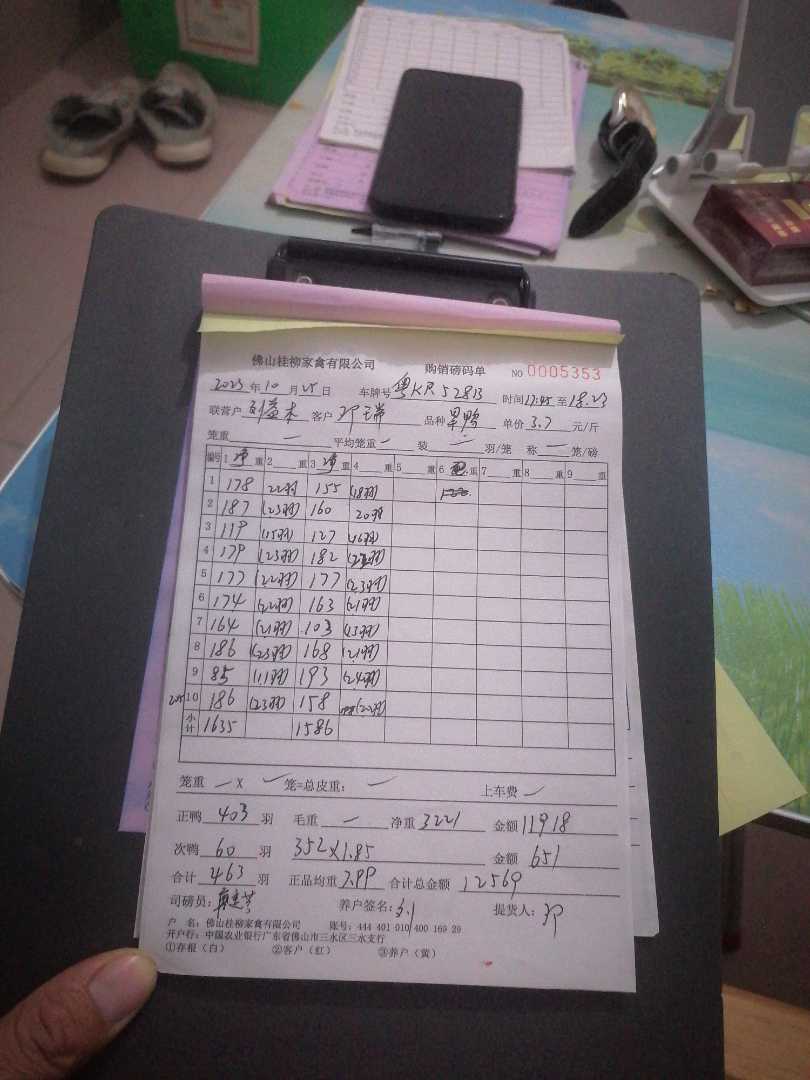 佛山桂柳家禽有限公司 购销磅码单 NO 0005353
2023年10月25日 车牌号 粤KR52813 时间17:45至18:23
联营户 客户 邓瑞 品种 单价 3.7 元/斤
笼重 — 平均笼重 — 装 — 羽/笼 称 — 笼/磅
编号 1 净 重 2 重 3 净 重 4 重 5 重 6 重 7 重 8 重 9 重
1 178 22羽 155 (18羽)
2 187 (23羽) 160 20羽
3 119 (15羽) 127 (16羽)
4 179 (23羽) 182 羽)
5 177 (22羽) 177 (23羽)
6 174 (22羽) 163 (21羽)
7 164 (21羽) 103 (13羽)
8 186 (23羽) 168 (21羽)
9 85 (11羽) 193 (24羽)
10 186 (23羽) 158 (20羽)
小计 1635 1586
笼重 — X 笼=总皮重: — 上车费 —
正鸭 403 羽 毛重 — 净重 3221 金额 11918
次鸭 60 羽 352×1.85 金额 651
合计 463 羽 正品均重 7.99 合计总金额 12569
司磅员: 养户签名: 提货人: 邓
户 名: 佛山桂柳家禽有限公司 账号: 444 401 010 400 169 29
开户行: 中国农业银行广东省佛山市三水区三水支行
①存根(白) ②客户(红) ③养户(黄)